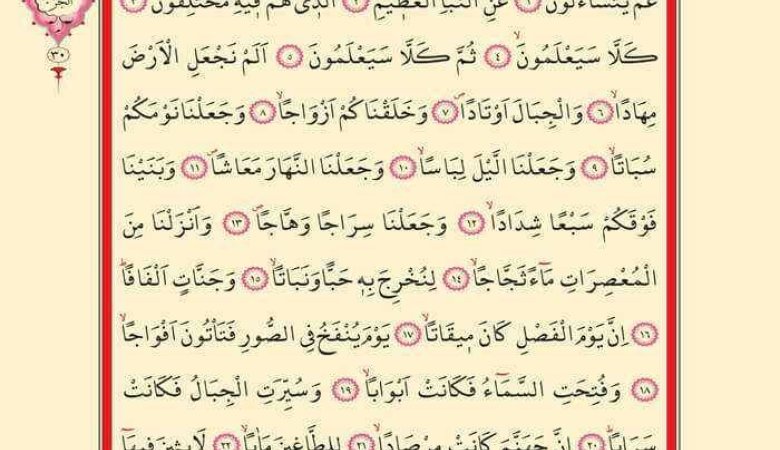 الجزء
٣٠
عَمَّ يَتَسَٓاءَلُونَۚ ﴿١﴾ عَنِ النَّبَأِ الْعَظ۪يمِۙ ﴿٢﴾ اَلَّذ۪ي هُمْ ف۪يهِ مُخْتَلِفُونَۜ ﴿٣﴾
كَلَّا سَيَعْلَمُونَۙ ﴿٤﴾ ثُمَّ كَلَّا سَيَعْلَمُونَ ﴿٥﴾ اَلَمْ نَجْعَلِ الْاَرْضَ
مِهَادًاۙ ﴿٦﴾ وَالْجِبَالَ اَوْتَادًاۖ ﴿٧﴾ وَخَلَقْنَاكُمْ اَزْوَاجًاۙ ﴿٨﴾ وَجَعَلْنَا نَوْمَكُمْ
سُبَاتًاۙ ﴿٩﴾ وَجَعَلْنَا الَّيْلَ لِبَاسًاۙ ﴿١٠﴾ وَجَعَلْنَا النَّهَارَ مَعَاشًاۖ ﴿١١﴾ وَبَنَيْنَا
فَوْقَكُمْ سَبْعًا شِدَادًاۙ ﴿١٢﴾ وَجَعَلْنَا سِرَاجًا وَهَّاجًاۖ ﴿١٣﴾ وَاَنْزَلْنَا مِنَ
الْمُعْصِرَاتِ مَٓاءً ثَجَّاجًاۙ ﴿١٤﴾ لِنُخْرِجَ بِه۪ حَبًّا وَنَبَاتًاۙ ﴿١٥﴾ وَجَنَّاتٍ اَلْفَافًاۜ
﴿١٦﴾ اِنَّ يَوْمَ الْفَصْلِ كَانَ م۪يقَاتًاۙ ﴿١٧﴾ يَوْمَ يُنْفَخُ فِي الصُّورِ فَتَأْتُونَ اَفْوَاجًاۙ
﴿١٨﴾ وَفُتِحَتِ السَّمَٓاءُ فَكَانَتْ اَبْوَابًاۙ ﴿١٩﴾ وَسُيِّرَتِ الْجِبَالُ فَكَانَتْ
سَرَابًاۜ ﴿٢٠﴾ اِنَّ جَهَنَّمَ كَانَتْ مِرْصَادًاۙ ﴿٢١﴾ لِلطَّاغ۪ينَ مَاٰبًاۙ ﴿٢٢﴾ لَابِث۪ينَ ف۪يهَٓا